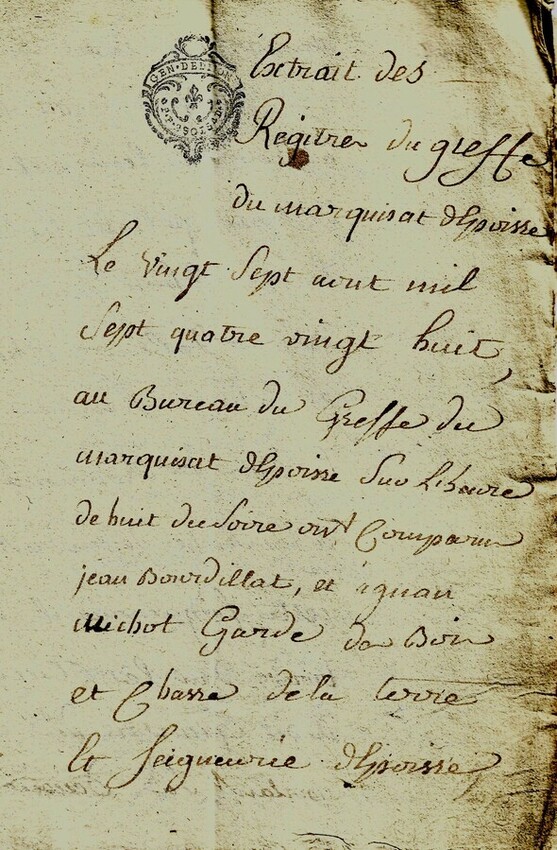 GEN · DE DIJON
Extrait des
Régitres du greffe
du marquisat dEpoisse
Le vingt Sept aout mil
Sept quatre vingt huit,
au Bureau du Greffe du
marquisat dEpoisse Sur Lheure
de huit du Soire ont Comparu
jean Bourdillat, et agnan
Michot Garde de Bois
et Chasse de la terre
et Seigneurie dEpoisse,